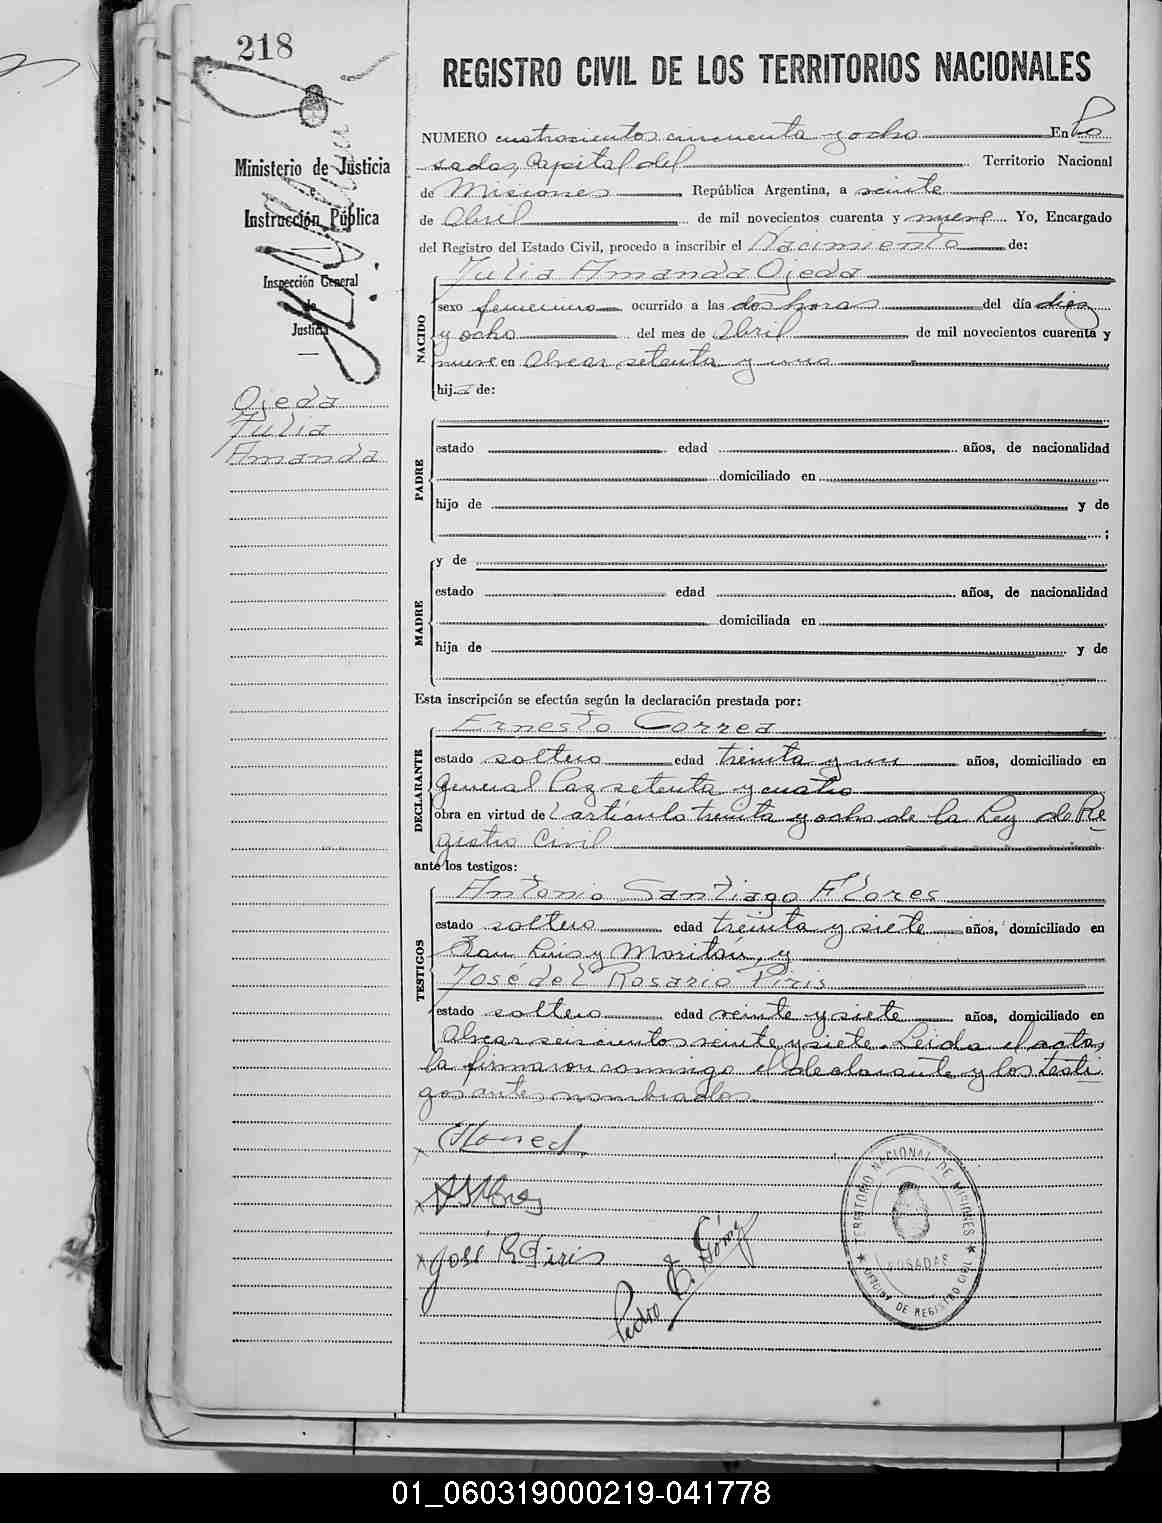 218
REGISTRO CIVIL DE LOS TERRITORIOS NACIONALES
Ministerio de Justicia
e
Instrucción Pública
Inspección General
de
Justicia
Ojeda
Julia
Amanda
NUMERO cuatrocientos cincuenta y ocho En Po
sadas, Capital del Territorio Nacional
de Misiones República Argentina, a veinte
de Abril de mil novecientos cuarenta y nueve Yo, Encargado
del Registro del Estado Civil, procedo a inscribir el Nacimiento de:
NACIDO
Julia Amanda Ojeda
sexo femenino ocurrido a las dos horas del día diez
y ocho del mes de Abril de mil novecientos cuarenta y
nueve en Alvear setenta y uno
hija de:
PADRE
estado edad años, de nacionalidad
domiciliado en
hijo de y de
;
MADRE
y de
estado edad años, de nacionalidad
domiciliada en
hija de y de
Esta inscripción se efectúa según la declaración prestada por:
DECLARANTE
Ernesto Correa
estado soltero edad treinta y un años, domiciliado en
General Paz setenta y cuatro
obra en virtud del artículo treinta y ocho de la Ley de Re
gistro Civil
ante los testigos:
TESTIGOS
Antonio Santiago Flores
estado soltero edad treinta y siete años, domiciliado en
San Luis y y
José del Rosario Piris
estado soltero edad veinte y siete años, domiciliado en
Alvear seiscientos veinte y siete. Leida el acta,
la firmaron conmigo el declarante y los testi
gos antes nombrados.
José R Piris
Pedro E. Gómez
TERRITORIO NACIONAL DE MISIONES
POSADAS
OFICINA DE REGISTRO CIVIL
01_060319000219-041778